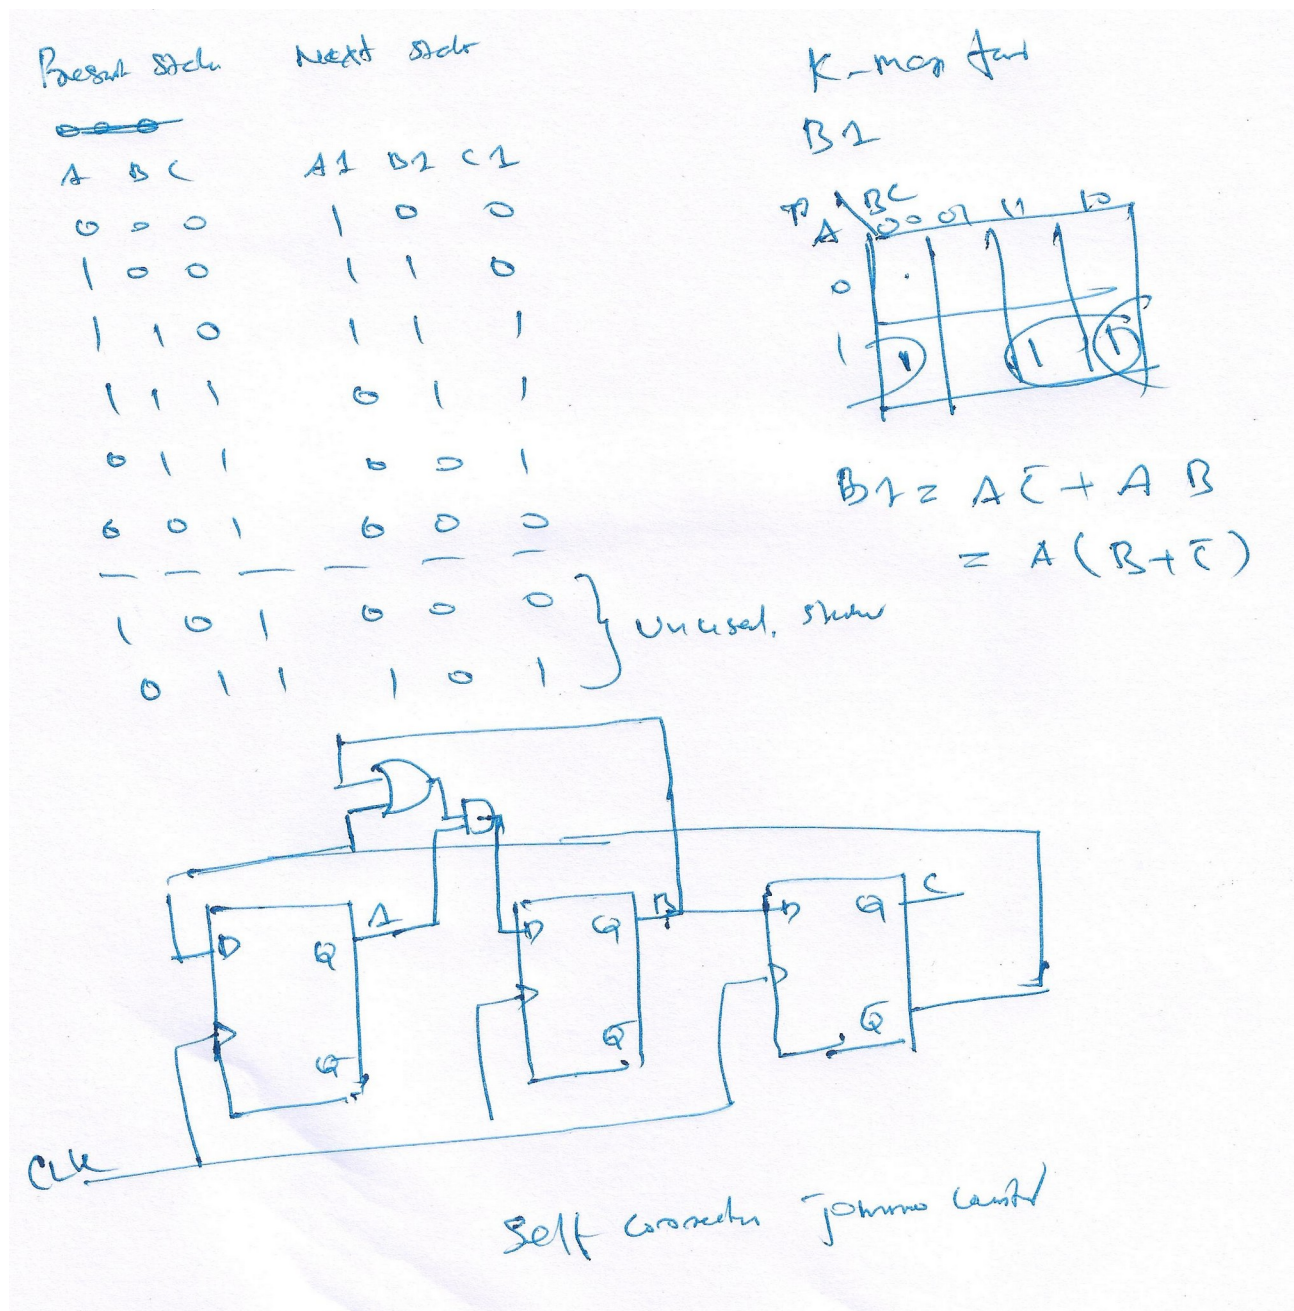 Present state Next state
A B C A1 B1 C1
0 0 0 1 0 0
1 0 0 1 1 0
1 1 0 1 1 1
1 1 1 0 1 1
0 1 1 0 0 1
0 0 1 0 0 0
1 0 1 0 0 0
0 1 1 1 0 1
} Unused. states
K-map for
B1
A BC
00 01 11 10
0
1 1 1 1
B1 = A C̅ + A B
= A (B + C̅)
A B C
D Q D Q D Q
Q̅ Q̅ Q̅
CLK
Self correcting Johnson counter